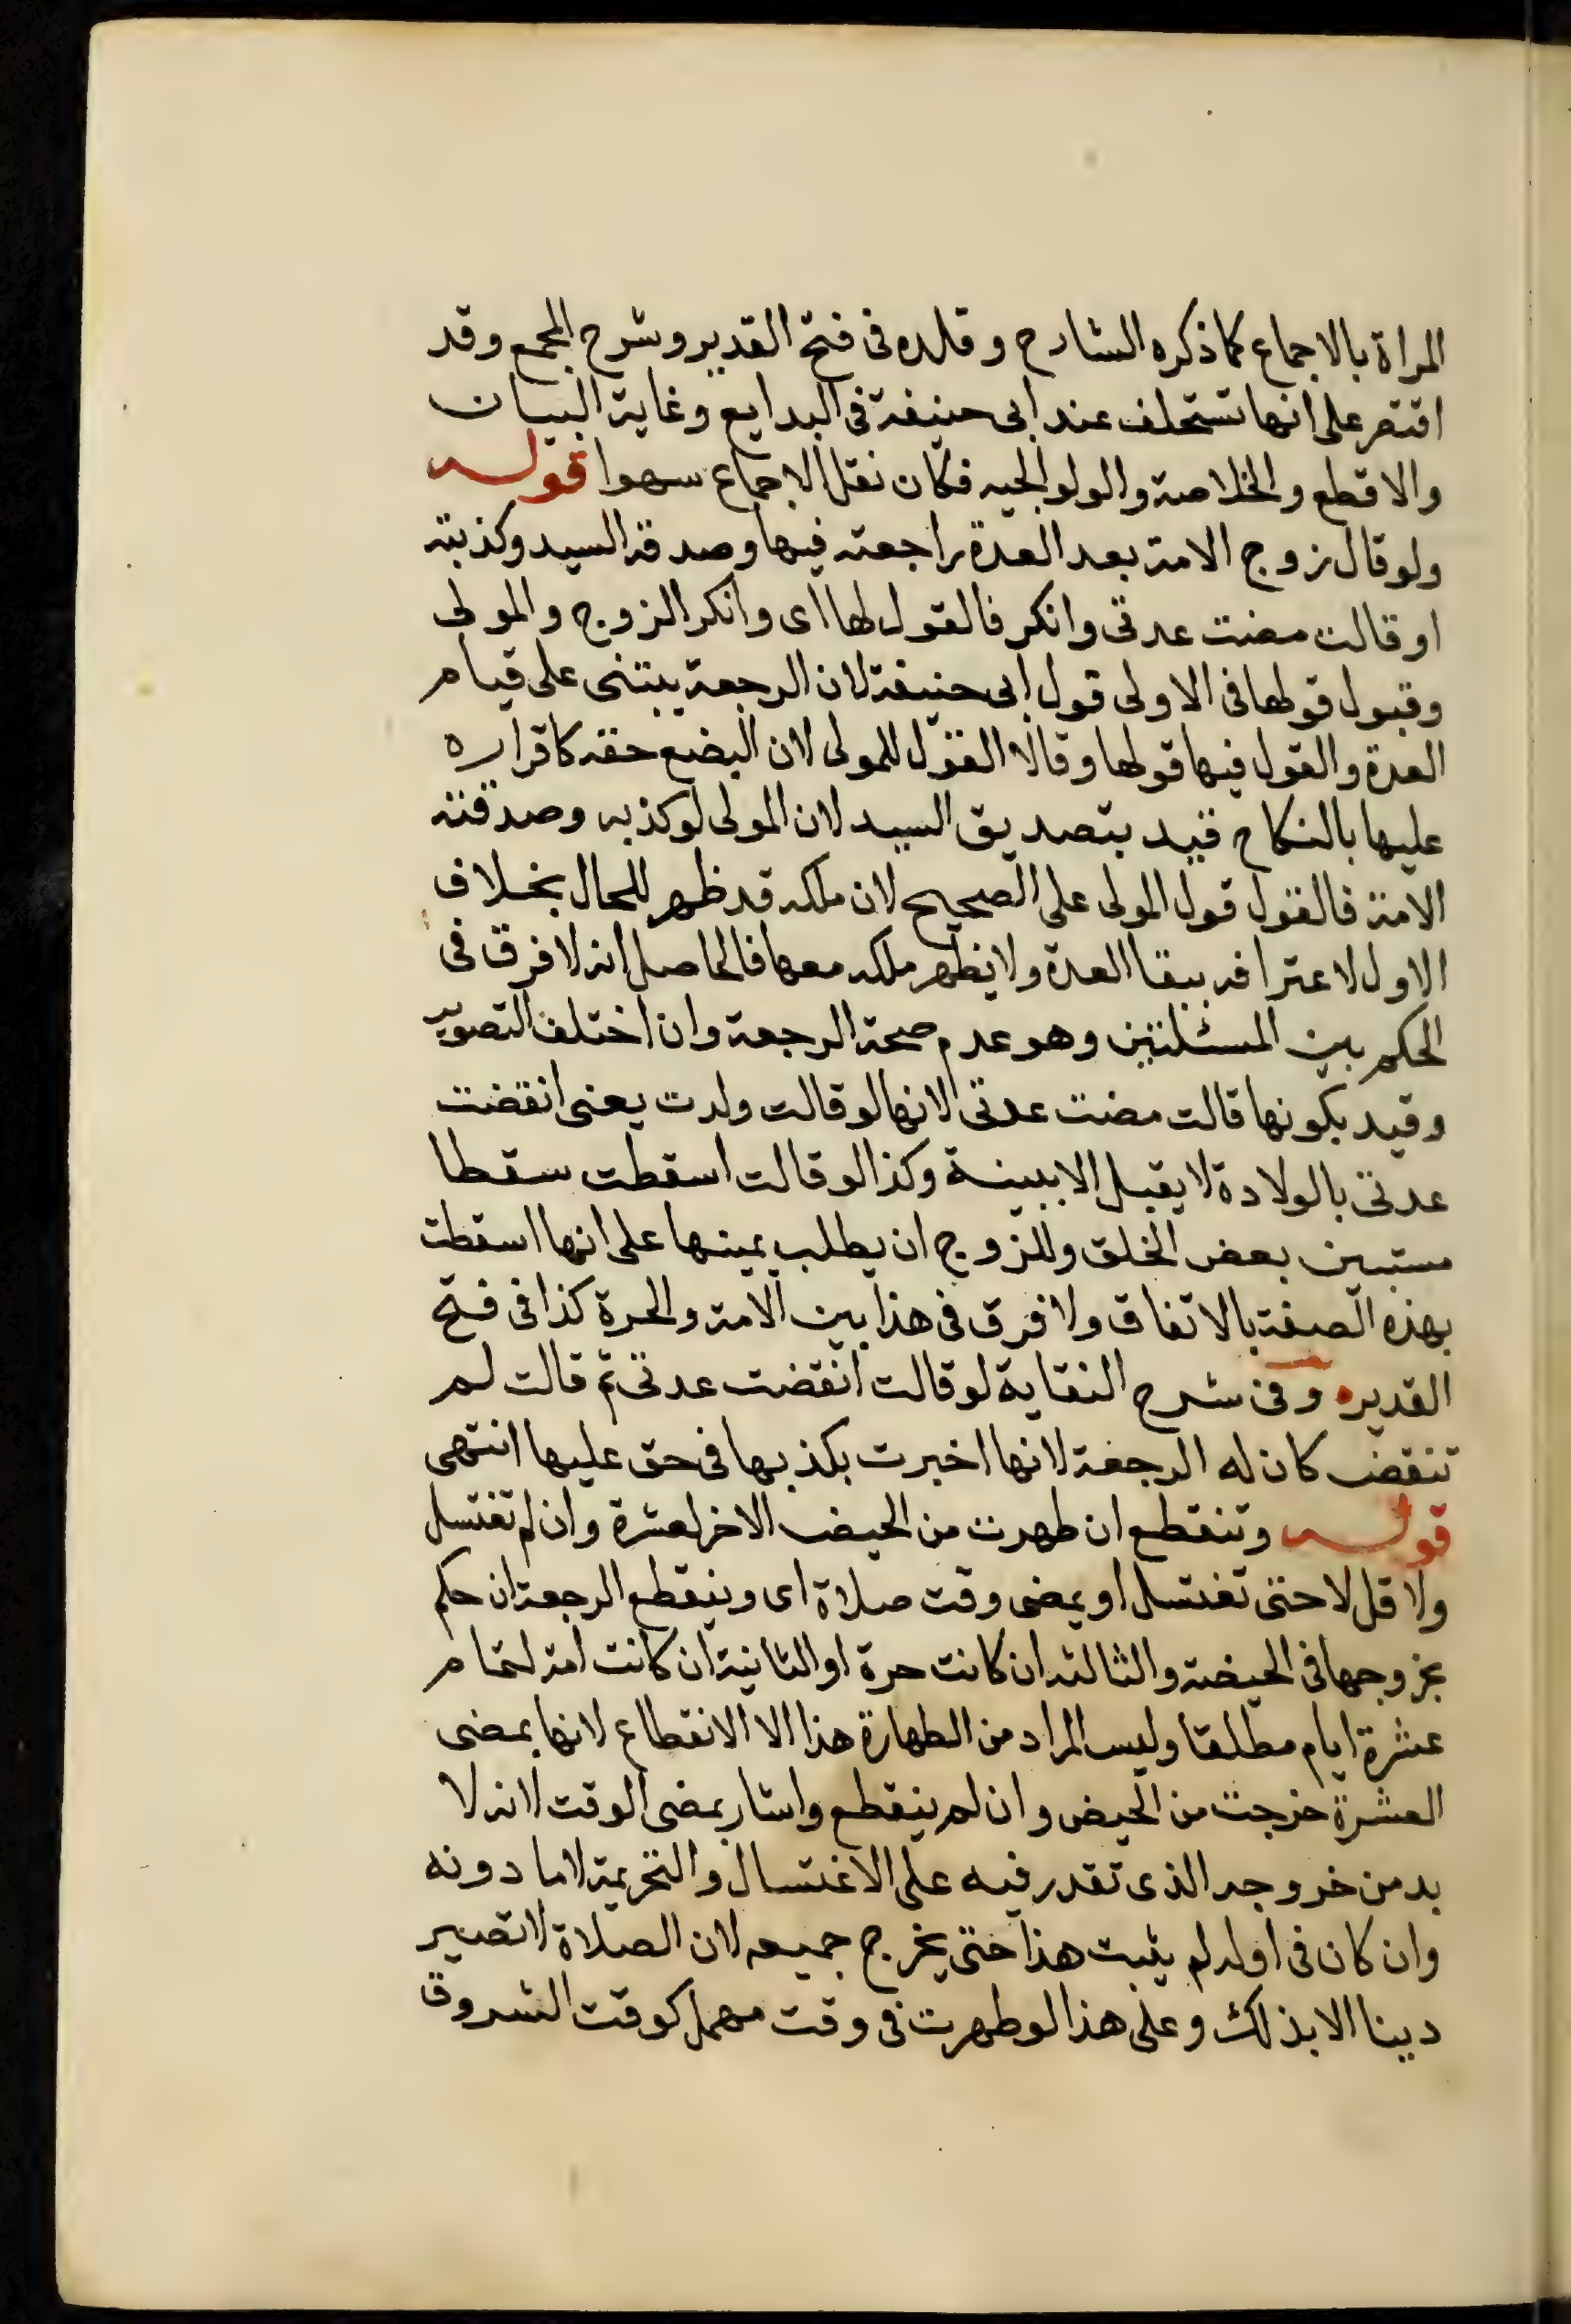 المراة بالاجماع كما ذكره الشارح وقلده فى فتح القدير وشرح المجمع وقد
اقتصر على انها تستحلف عند ابى حنيفة فى البدايع وغاية البيان
والاقطع والخلاصة والولوالجيه فكان نقل الاجماع سهوا قوله
ولو قال زوج الامة بعد العدة راجعته فيها وصدقه السيد وكذبته
او قالت مضت عدتى وانكر فالقول لها اى وانكر الزوج والمولى
وقبول قولها فى الاولى قول ابى حنيفة لان الرجعة يبتنى على قيام
العدة والقول فيها قولها وقالا القول للمولى لان البضع حقه كاقراره
عليها بالنكاح قيد بتصديق السيد لان المولى لو كذبه وصدقته
الامة فالقول قول المولى على الصحيح لان ملكه قد ظهر للحال بخلاف
الاول لاعترافه ببقا العدة ولا يظهر ملكه معها فالحاصل انه لا فرق فى
الحكم بين المسئلتين وهو عدم صحة الرجعة وان اختلف التصوير
وقيد بكونها قالت مضت عدتى لانها لو قالت ولدت يعنى انقضت
عدتى بالولادة لا يقبل الا ببينة وكذا لو قالت اسقطت سقطا
مستبين بعض الخلق وللزوج ان يطلب يمينها على انها اسقطت
بهذه الصفة بالاتفاق ولا فرق فى هذا بين الامة والحرة كذا فى فتح
القديره وفى شرح النقاية لو قالت انقضت عدتى ثم قالت لم
تنقض كان له الرجعة لانها اخبرت بكذبها فى حق عليها انتهى
قوله وتنقطع ان طهرت من الحيض الاخر لعشرة وان لم تغتسل
ولاقل لا حتى تغتسل او يمضى وقت صلاة اى وينقطع الرجعة ان حكم
بخروجها فى الحيضة والثالثه ان كانت حرة او الثانية ان كانت امة لتمام
عشرة ايام مطلقا وليس المراد من الطهارة هذا الا الانقطاع لانها بمضى
العشرة خرجت من الحيض وان لم ينقطع واشار بمضى الوقت لانه لا
بد من خروجه الذى تقدر فيه على الاغتسال والتحريمة لاما دونه
وان كان فى اوله لم يثبت هذا حتى يخرج جميعه لان الصلاة لا تصير
دينا الا بذلك وعلى هذا لو طهرت فى وقت مهمل كوقت الشروق